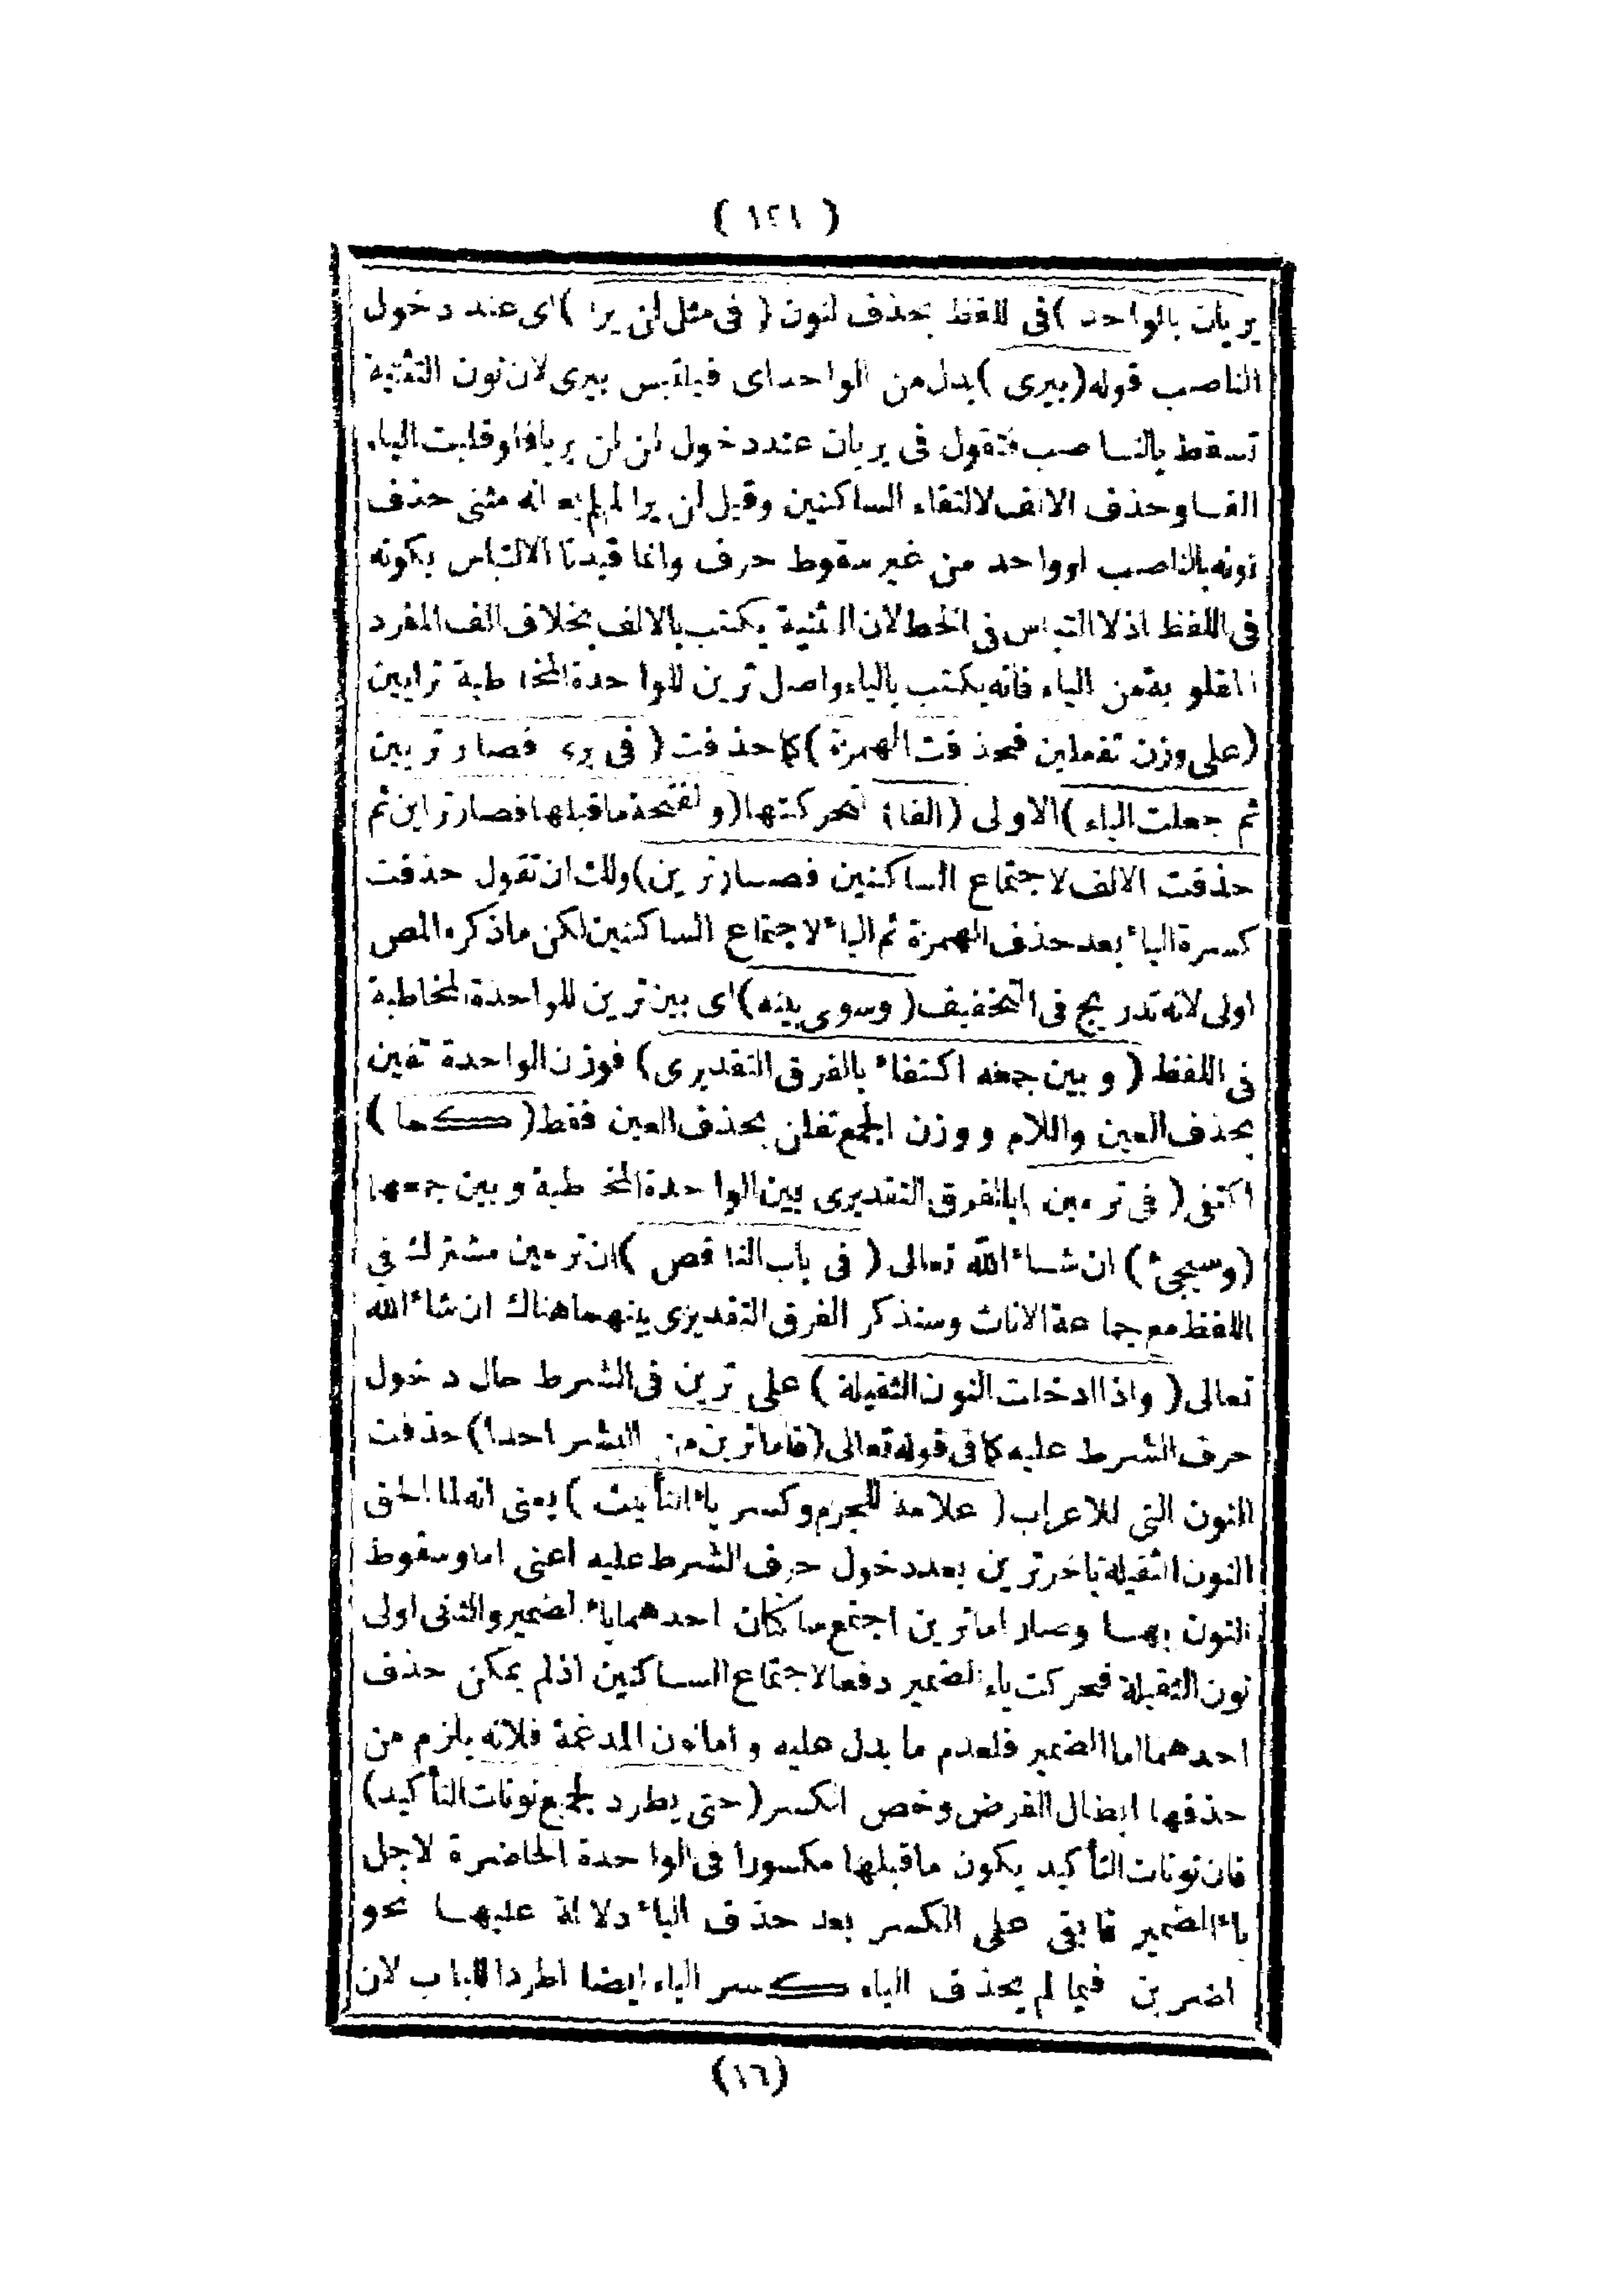 ( ١٢١ )
يريان بالواحد ) فى اللفظ بحذف النون ( فى مثل لن يرا ) اى عند دخول
الناصب قوله ( بيرى ) بدل من الواحد اى فيلتبس بيرى لان نون التثنية
تسقط بالناصب فتقول فى يريان عند دخول لن لن يريا فلو قلبت الياء
الفا وحذف الالف لالتقاء الساكنين وقيل لن يرا لم يعلم انه مثنى حذف
نونه بالناصب او واحد من غير سقوط حرف وانما قيدنا الالتباس بكونه
فى اللفظ اذ لا التباس فى الخط لان التثنية يكتب بالالف بخلاف الف المفرد
المقلوبة من الياء فانه يكتب بالياء واصل ترين للواحدة المخاطبة ترايين
( على وزن تفعلين فحذفت الهمزة ) كما حذفت ( فى يرى فصار تريين
ثم جعلت الياء ) الاولى ( الفا ) لتحركتها ( ولفتحة ما قبلها فصار تراين ثم
حذفت الالف لاجتماع الساكنين فصار ترين ) ولك ان تقول حذفت
كسرة الياء بعد حذف الهمزة ثم الياء لاجتماع الساكنين لكن ما ذكره المص
اولى لانه تدريج فى التخفيف ( وسوى بينه ) اى بين ترين للواحدة المخاطبة
فى اللفظ ( و بين جمعه اكتفاء بالفرق التقديرى ) فوزن الواحدة تفين
بحذف العين واللام ووزن الجمع تفلن بحذف العين فقط ( كما )
اكتفى ( فى ترمين ) بالفرق التقديرى بين الواحدة المخاطبة و بين جمعها
( وسيجئ ) ان شاء الله تعالى ( فى باب الناقص ) ان ترمين مشترك فى
اللفظ مع جماعة الاناث وسنذكر الفرق التقديرى بينهما هناك ان شاء الله
تعالى ( واذا ادخلت النون الثقيلة ) على ترين فى الشرط حال دخول
حرف الشرط عليه كما فى قوله تعالى ( فاما ترين من البشر احدا ) حذفت
النون التى للاعراب ( علامة للجزم وكسر ياء التأنيث ) يعنى انه لما الحق
النون الثقيلة باخر ترين بعد دخول حرف الشرط عليه اعنى اما وسقوط
النون بها وصار اما ترين اجتمع ساكنان احدهما ياء الضمير والثانى اولى
نون الثقيلة فحركت ياء الضمير دفعا لاجتماع الساكنين اذ لم يمكن حذف
احدهما اما الضمير فلعدم ما يدل عليه و اما نون المدغمة فلانه يلزم من
حذفها ابطال الغرض وخص الكسر ( حتى يطرد بجميع نونات التأكيد )
فان نونات التأكيد يكون ما قبلها مكسورا فى الواحدة الحاضرة لاجل
ياء الضمير فابقى على الكسر بعد حذف الياء دلالة عليها نحو
اضربن فيما لم يحذف الياء كسر الياء ايضا اطردا للباب لان
(١٦)